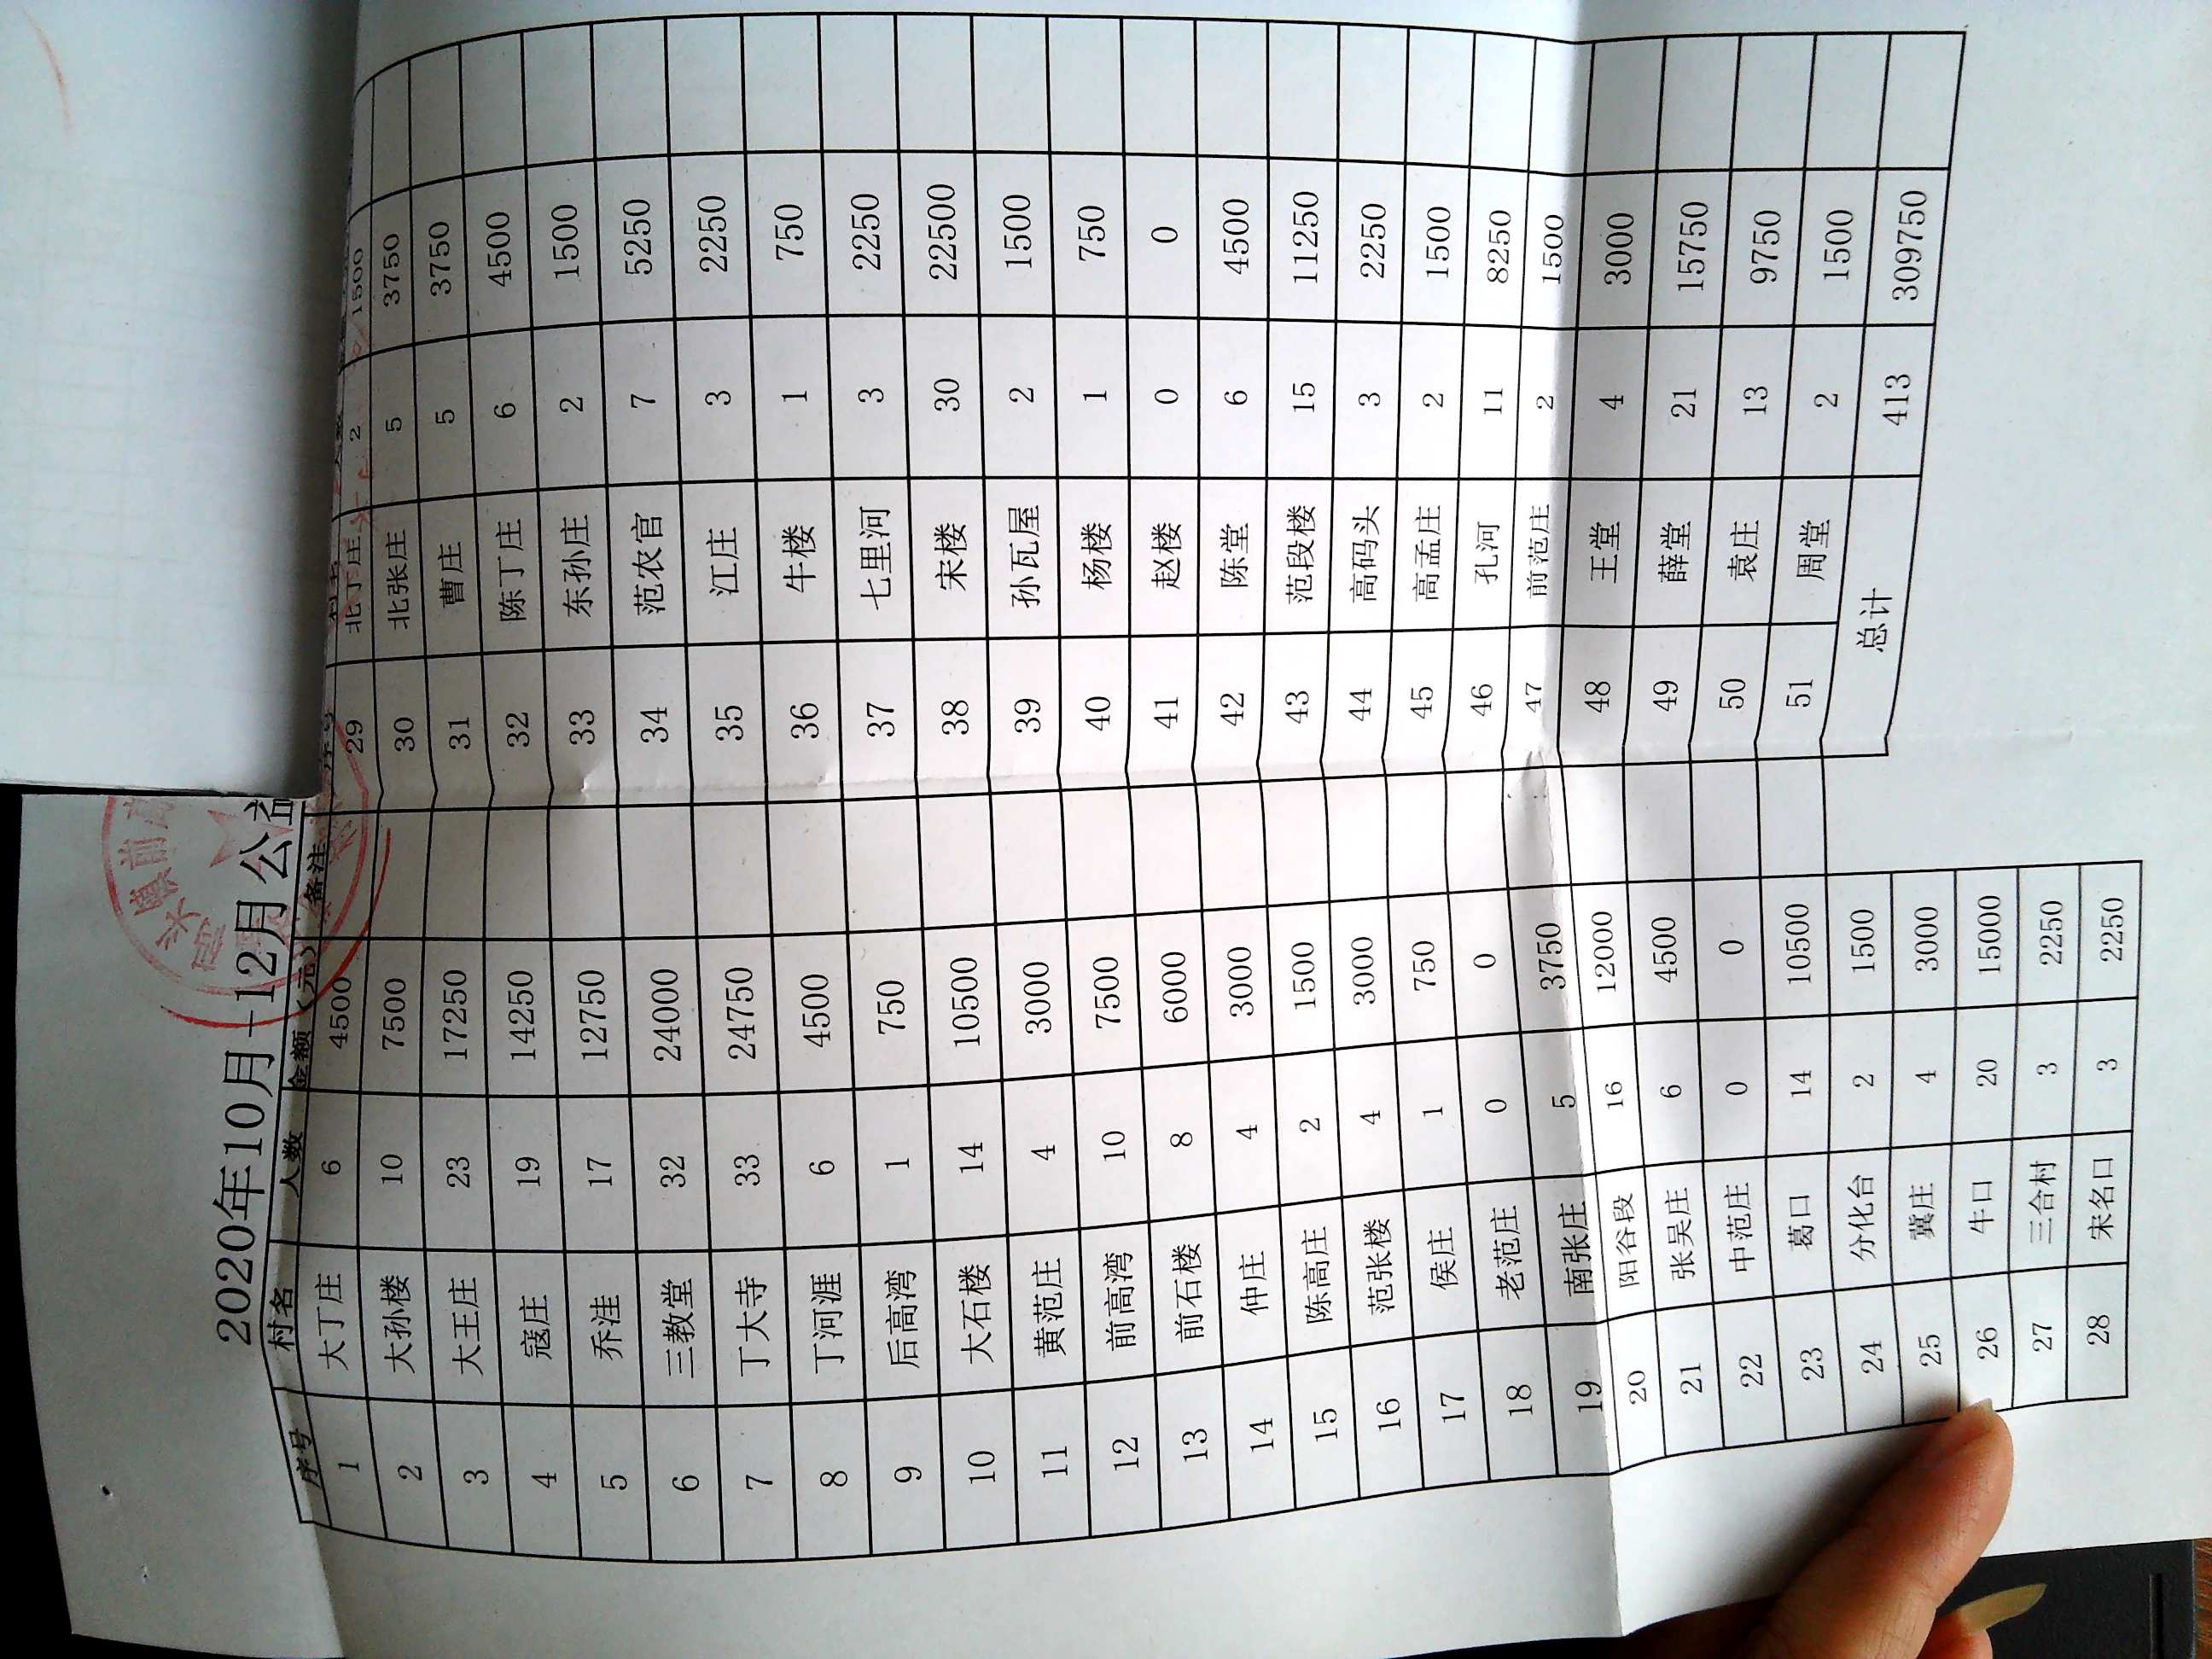 2020年10月-12月公益
序号 村名 人数 金额（元） 备注
1 大丁庄 6 4500
2 大孙楼 10 7500
3 大王庄 23 17250
4 寇庄 19 14250
5 乔洼 17 12750
6 三教堂 32 24000
7 丁大寺 33 24750
8 丁河涯 6 4500
9 后高湾 1 750
10 大石楼 14 10500
11 黄范庄 4 3000
12 前高湾 10 7500
13 前石楼 8 6000
14 仲庄 4 3000
15 陈高庄 2 1500
16 范张楼 4 3000
17 侯庄 1 750
18 老范庄 0 0
19 南张庄 5 3750
20 阳谷段 16 12000
21 张吴庄 6 4500
22 中范庄 0 0
23 葛口 14 10500
24 分化台 2 1500
25 冀庄 4 3000
26 牛口 20 15000
27 三合村 3 2250
28 宋名口 3 2250
序号 村名 人数
29 北丁庄 2 1500
30 北张庄 5 3750
31 曹庄 5 3750
32 陈丁庄 6 4500
33 东孙庄 2 1500
34 范农官 7 5250
35 江庄 3 2250
36 牛楼 1 750
37 七里河 3 2250
38 宋楼 30 22500
39 孙瓦屋 2 1500
40 杨楼 1 750
41 赵楼 0 0
42 陈堂 6 4500
43 范段楼 15 11250
44 高码头 3 2250
45 高孟庄 2 1500
46 孔河 11 8250
47 前范庄 2 1500
48 王堂 4 3000
49 薛堂 21 15750
50 袁庄 13 9750
51 周堂 2 1500
总计 413 309750